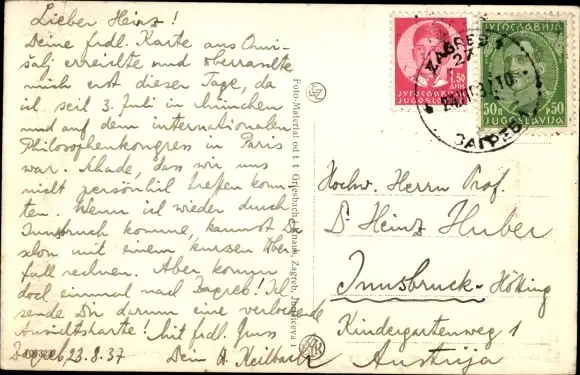 Lieber Heinz!
Deine frdl. Karte aus Omi-
šalj erreichte und überraschte
mich erst dieser Tage, da
ich seit 3. Juli in München
und auf dem internationalen
Philosophenkongress in Paris
war. Schade, dass wir uns
nicht persönlich treffen konn-
ten. Wenn ich wieder durch
Innsbruck komme, kannst Du
schon mit einem kurzen Über-
fall rechnen. Aber komm
doch einmal nach Zagreb! Ich
sende Dir darum eine verlockende
Ansichtskarte! Mit frdl. Gruss
Zagreb, 23.8.37 Dein A. Keilbach
Foto-Material od t. t. Griesbach i Knaus, Zagreb, Jurišićeva
ZAGREB
ЗАГРЕБ
1.50
ДИН
ЈУГОСЛАВИЈА
JUGOSLAVIJA
ЈУГОСЛАВИЈА
50 P50
JUGOSLAVIJA
Hochw. Herrn Prof.
Dr Heinz Huber
Innsbruck-Hötting
Kindergartenweg 1
Austrija